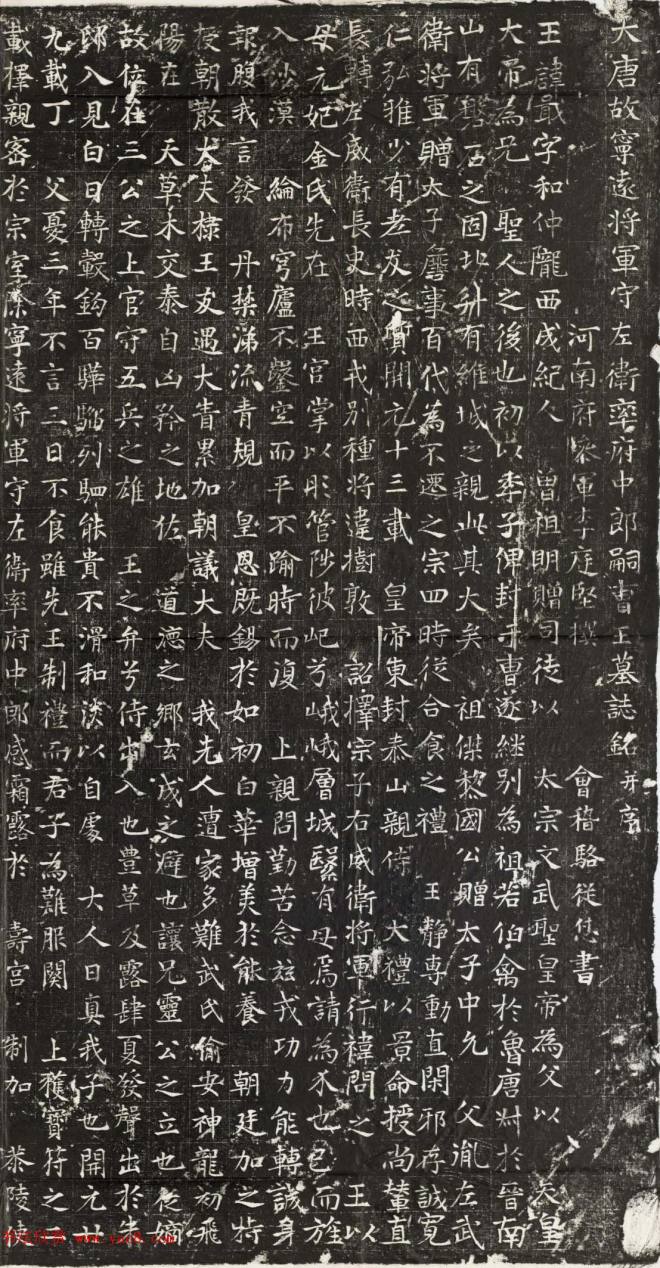 大唐故寧遠將軍守左衛率府中郎嗣曹王墓誌銘并序
河南府參軍李庭堅撰 會稽駱從恁書
王諱戢字和仲隴西成紀人 曾祖明贈司徒以 太宗文武聖皇帝為父以 天皇
大帝為兄 聖人之後也初以季子俾封于曹遂継別為祖若伯禽於魯唐叔於晉南
山有磐石之固北升有維城之親此其大矣 祖傑黎國公贈太子中允 父胤左武
衛將軍贈太子詹事百代為不遷之宗四時從合食之禮 王靜專動直閑邪存誠寬
仁弘雅少有孝友之質開元十三載 皇帝東封泰山親侍大禮以景命授尚輦直
長轉左威衛長史時西戎別種將違樹敦 詔擇宗子右威衛將軍行禕問之 王以
母元妃金氏先在 王宮掌以彤管陟彼屺兮峨峨層城翳有母焉請為介也已而旌
入沙漠 綸布穹廬不鑿空而平不踰時而復 上親問勤苦念茲戎功力能轉誠身
報腹我言發 丹禁涕流青規 皇恩既錫於如初白華增美於能養 朝廷加之特
授朝散大夫棣王友遇大眚累加朝議大夫 我先人遭家多難武氏偷安神龍初飛
陽在 天草木交泰自凶矜之地佐 道德之鄉玄成之避也讓兄靈公之立也從嫡
故位在三公之上官守五兵之雄 王之弁兮侍出入也豊草及露肆夏發聲出於
邸入見白日轉轂鈎百驊騮列駟能貴不滑和淡以自處 大人曰真我子也開元廿
九載丁 父憂三年不言三日不食雖先王制禮而君子為難服闋 上獲寶符之
載擇親密於宗室除寧遠將軍守左衛率府中郎感霜露於 壽宮 制加 恭陵
www.yac8.com